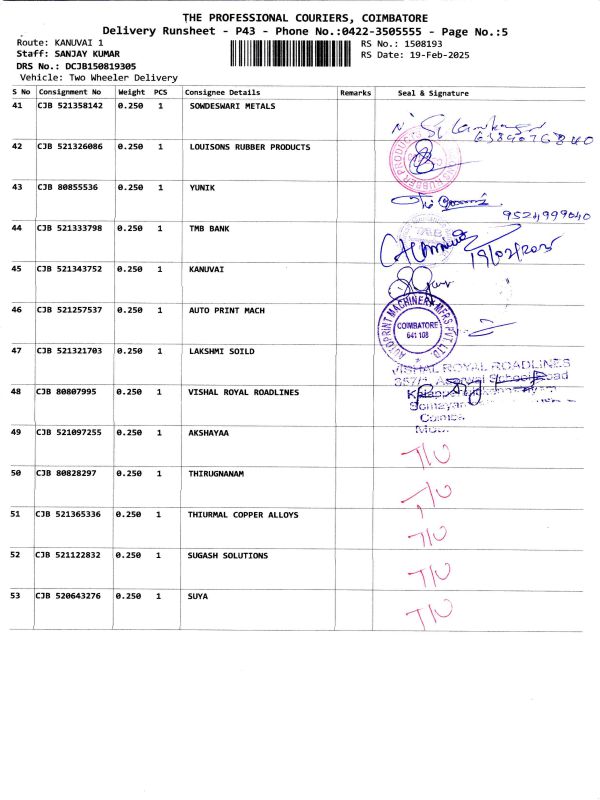 THE PROFESSIONAL COURIERS, COIMBATORE
Delivery Runsheet - P43 - Phone No.:0422-3505555 - Page No.:5
Route: KANUVAI 1 RS No.: 1508193
Staff: SANJAY KUMAR RS Date: 19-Feb-2025
DRS No.: DCJB150819305
Vehicle: Two Wheeler Delivery
S No Consignment No Weight PCS Consignee Details Remarks Seal & Signature
41 CJB 521358142 0.250 1 SOWDESWARI METALS
42 CJB 521326086 0.250 1 LOUISONS RUBBER PRODUCTS
43 CJB 80855536 0.250 1 YUNIK
9524999040
44 CJB 521333798 0.250 1 TMB BANK
19/02/2025
45 CJB 521343752 0.250 1 KANUVAI
46 CJB 521257537 0.250 1 AUTO PRINT MACH
AUTOPRINT MACHINERY MFRS PVT. LTD.
COIMBATORE
641 108
47 CJB 521321703 0.250 1 LAKSHMI SOILD
VISHAL ROYAL ROADLINES
48 CJB 80807995 0.250 1 VISHAL ROYAL ROADLINES
49 CJB 521097255 0.250 1 AKSHAYAA
50 CJB 80828297 0.250 1 THIRUGNANAM
51 CJB 521365336 0.250 1 THIURMAL COPPER ALLOYS
52 CJB 521122832 0.250 1 SUGASH SOLUTIONS
53 CJB 520643276 0.250 1 SUYA